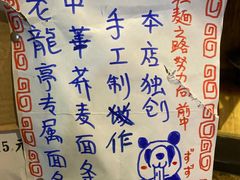 麺之路努力后前中
本店独创
手工制做作
中華荞麦面条
老龍亭专属面条
ずずず